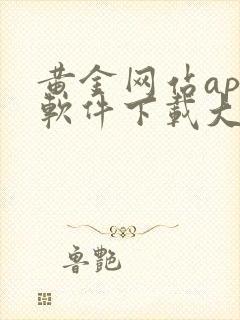 黄金网站ap
軟件下載大
鲁艷